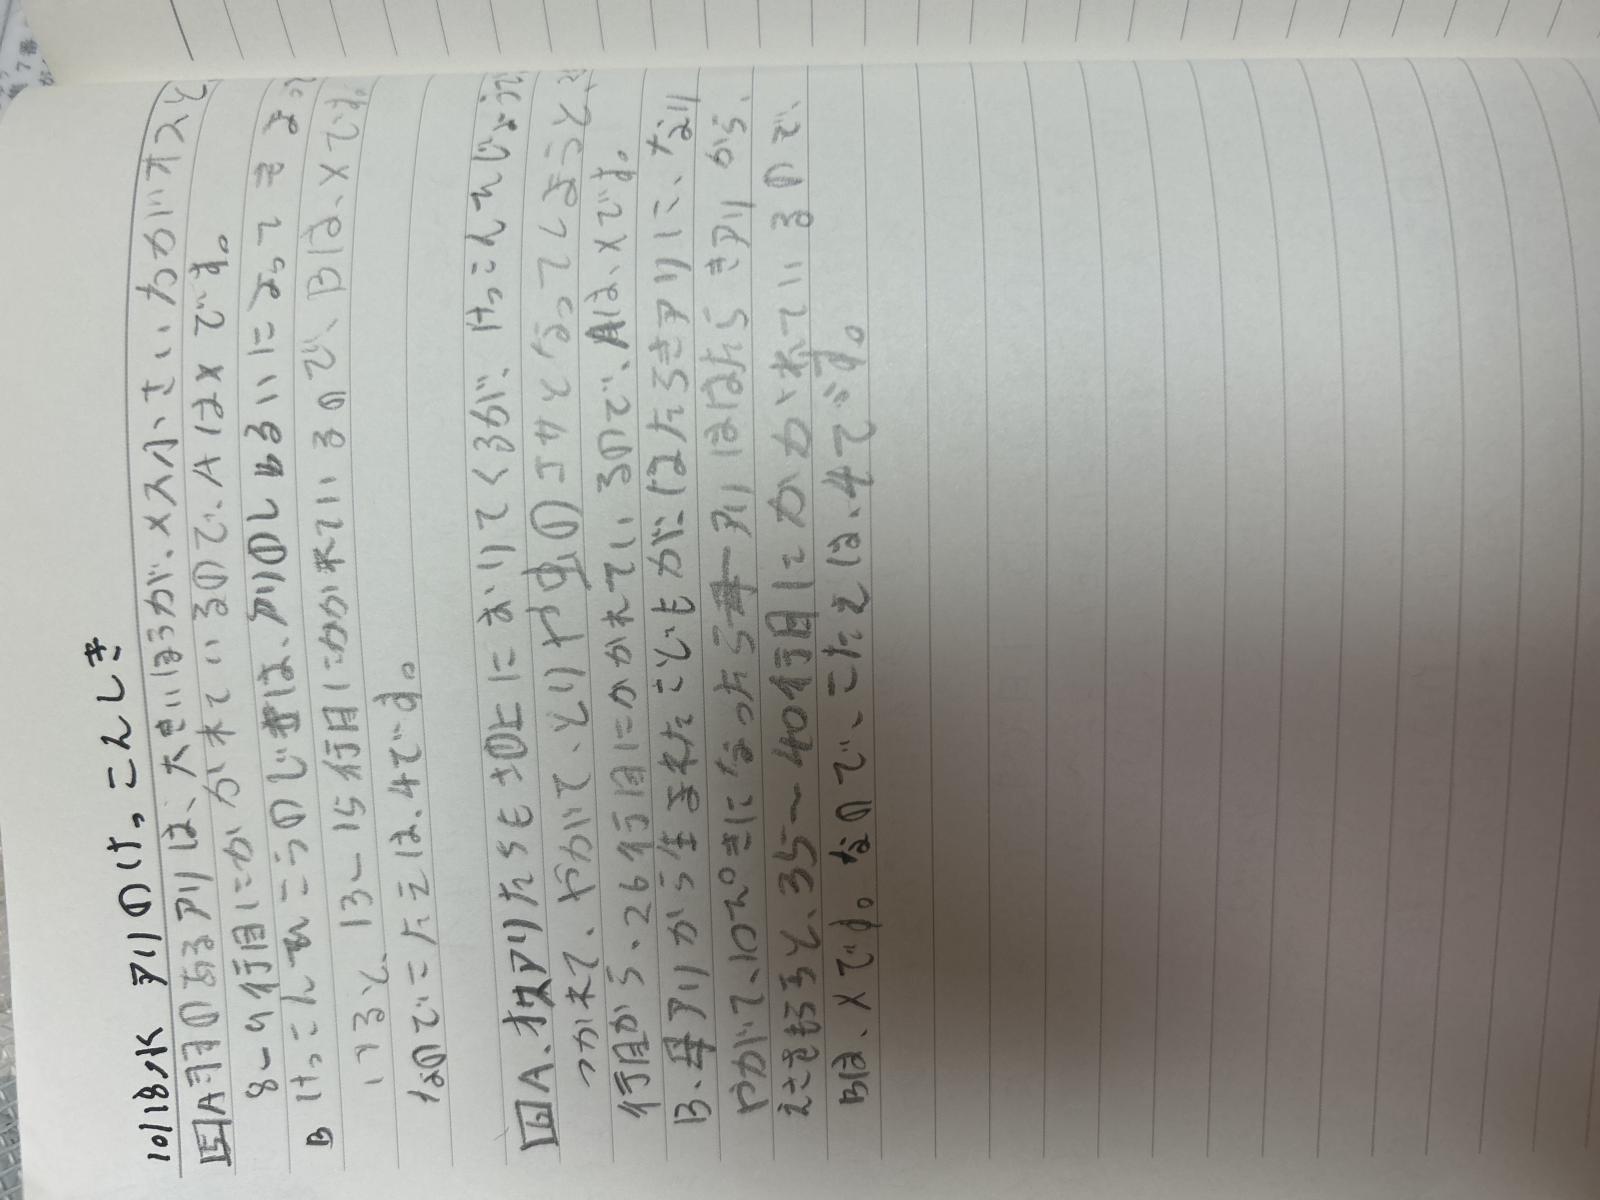 10/18水 アリのけっこんしき
5 A 羽のあるアリは、大きいほうが、メス小さいわがオスと
8〜9行目にかかれているので、AはXです。
B けっこんひこうのじきは、アリのしゅるいによってきまっ
けると、13〜15行目にかかれているので、Bは、Xです。
なのでこたえは、4です。
6 A、オスアリたちも地上におりてくるが、けっこんひじょうで
つかれて、やがて、とりや虫のエサとなってしまうと、
行目から、26行目にかかれているので、Aは、Xです。
B、母アリから生まれたこどもがにはたらきアリに、なり
やがて、10ぴきになったら アリははたらきアリから、
えさをもらうと、35〜40行目にかかれているので、
Bは、Xです。なので、こたえは、4です。